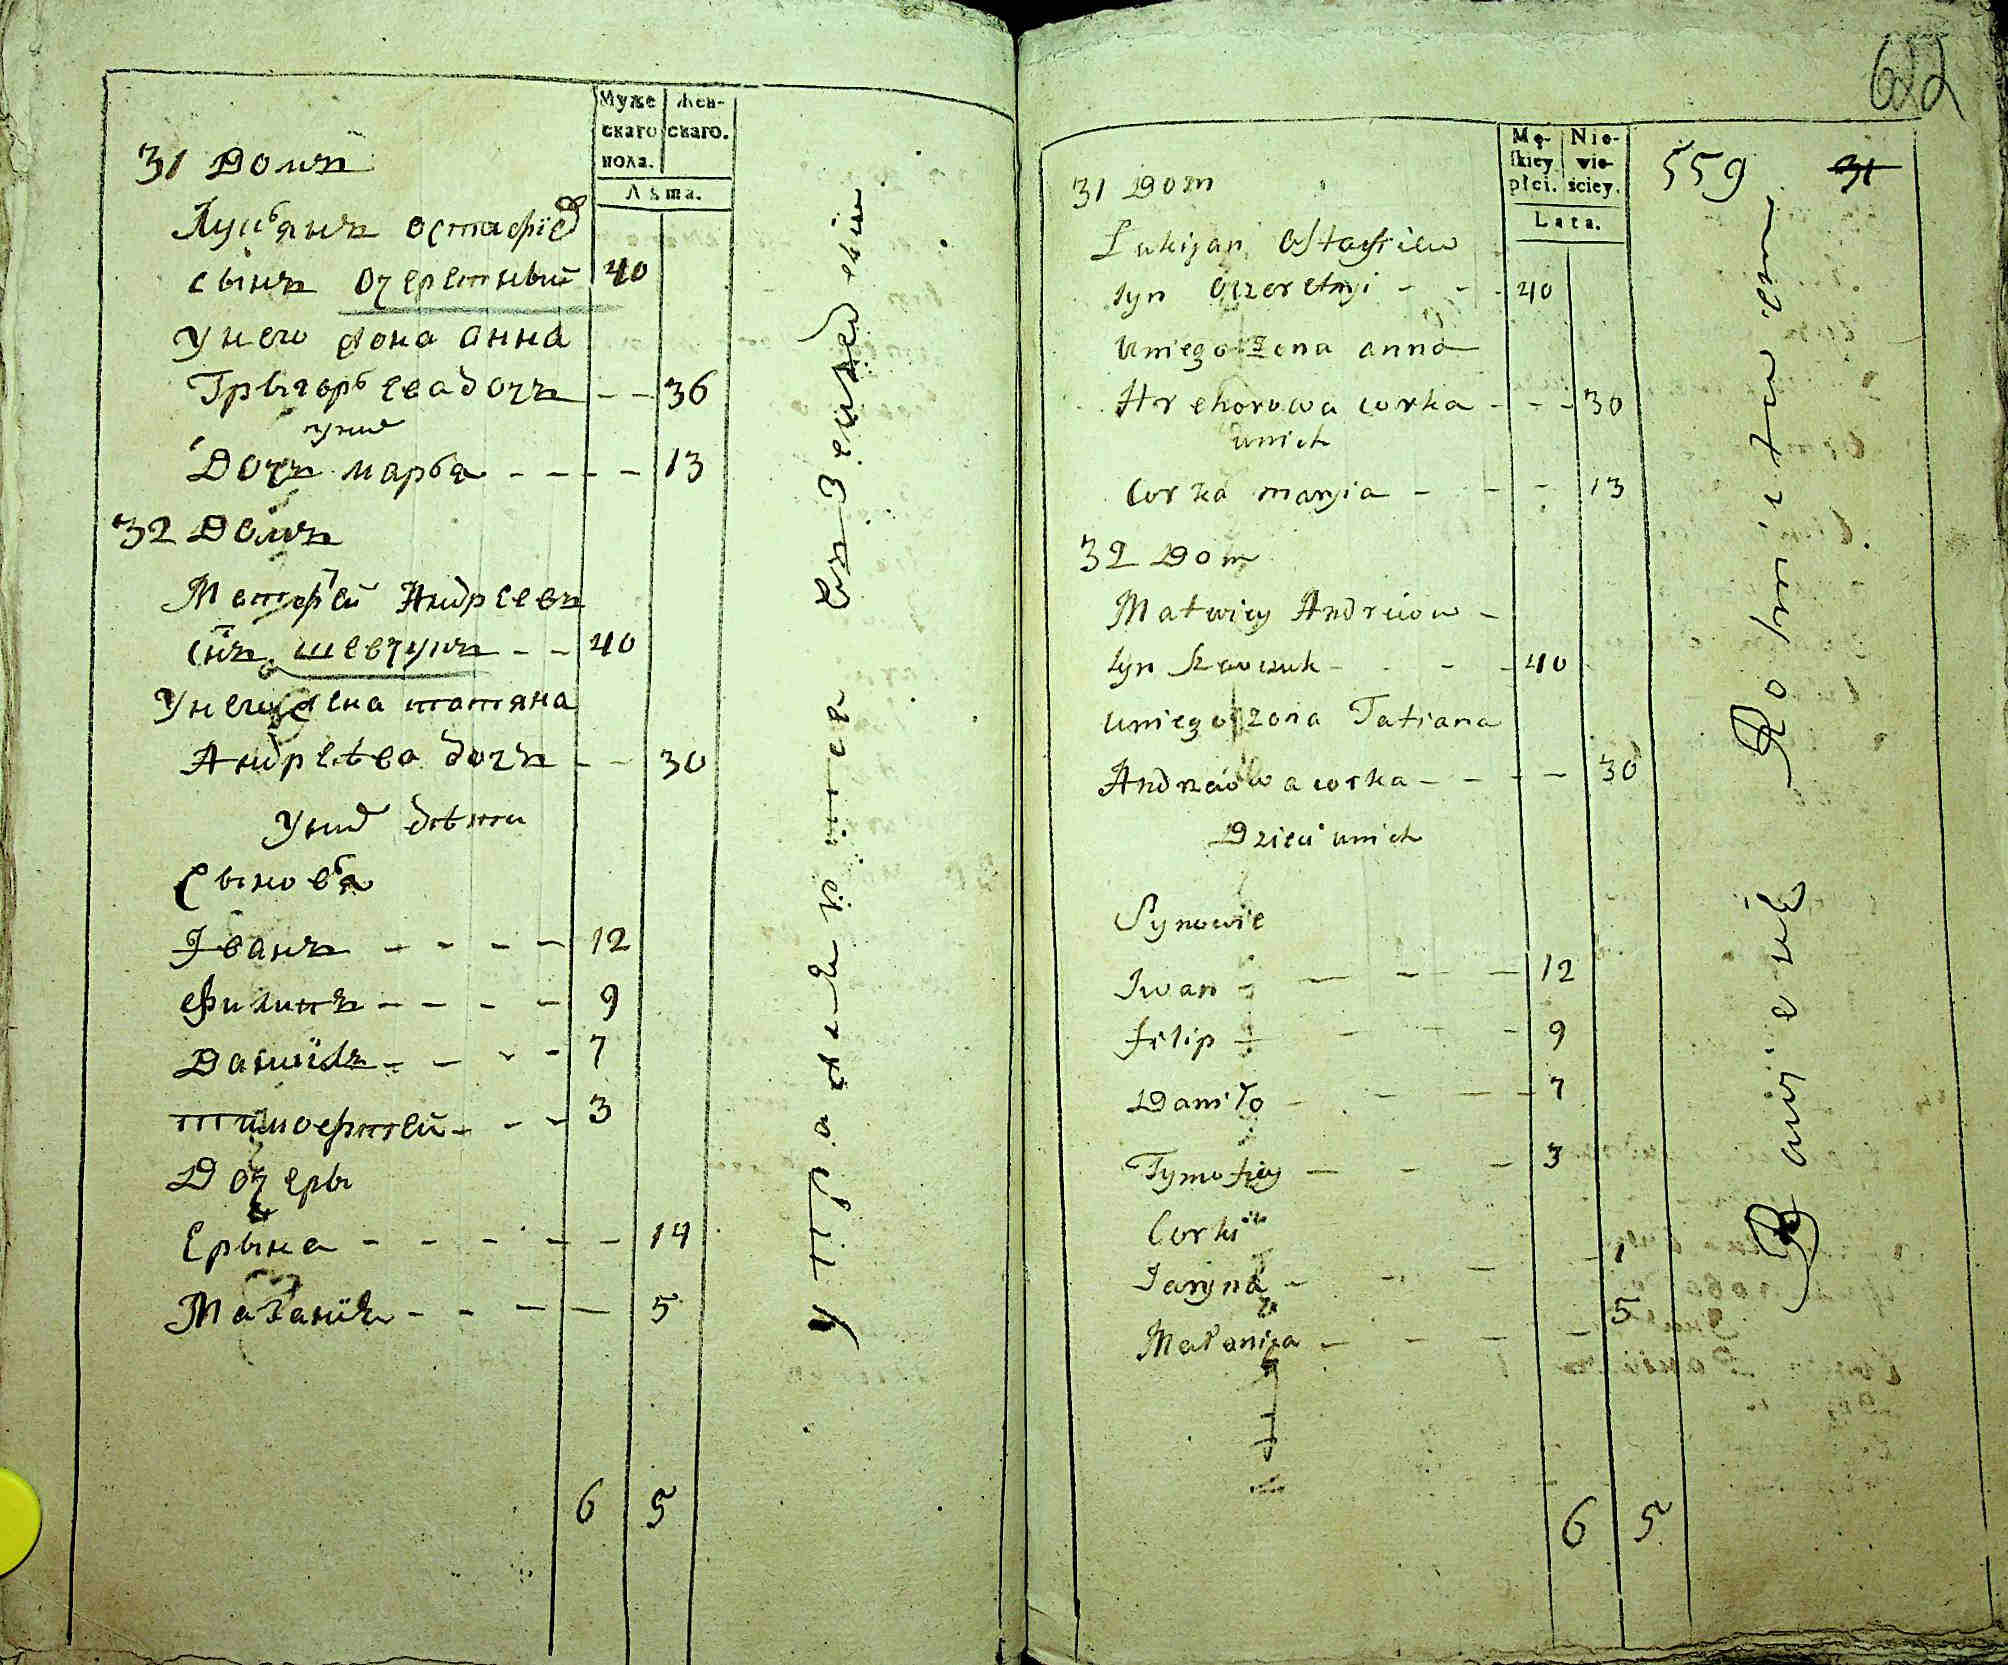 Муже
скаго
пола.
Жен-
скаго.
Лѣта.
31 Домъ
Лукьянъ Остафіев
сынъ Очеретный 40
У него жона Анна
Грыгорьева дочъ - - 36
У них
Дочъ Марья - - - - 13
32 Домъ
Матфей Андреевъ
снъ Шевчукъ - - 40
У него жена Татяна
Андрѣева дочъ - - 30
У них дѣти
Сыновья
Іванъ - - - - 12
Филипъ - - - - 9
Данііла - - - - 7
Тимофтей - - - 3
Дочеры
Ерына - - - - - 14
Маланія - - - - 5
6 5
упражняется въ земледелии
622
Mę-
skiey
płci.
Nie-
wie-
ściey.
Lata.
559 31
31 Dom
Lukijan Ostafiew
syn Oczeretnyi - - - 40
U niego żona Anna
Hrehorowa corka - - - 30
u nich
Corka Maryia - - - 13
32 Dom
Matwiey Andreiow -
syn Szewczuk - - - - 40
U niego żona Tatiana
Andrzeiowa corka - - - - 30
Dzieci u nich
Synowie
Iwan - - - - 12
Filip - - - 9
Daniło - - - - 7
Tymofiey - - - 3
Corki
Jaryna - - - -
Małanija - - - - 5
6 5
Bawi się Rolnictwem